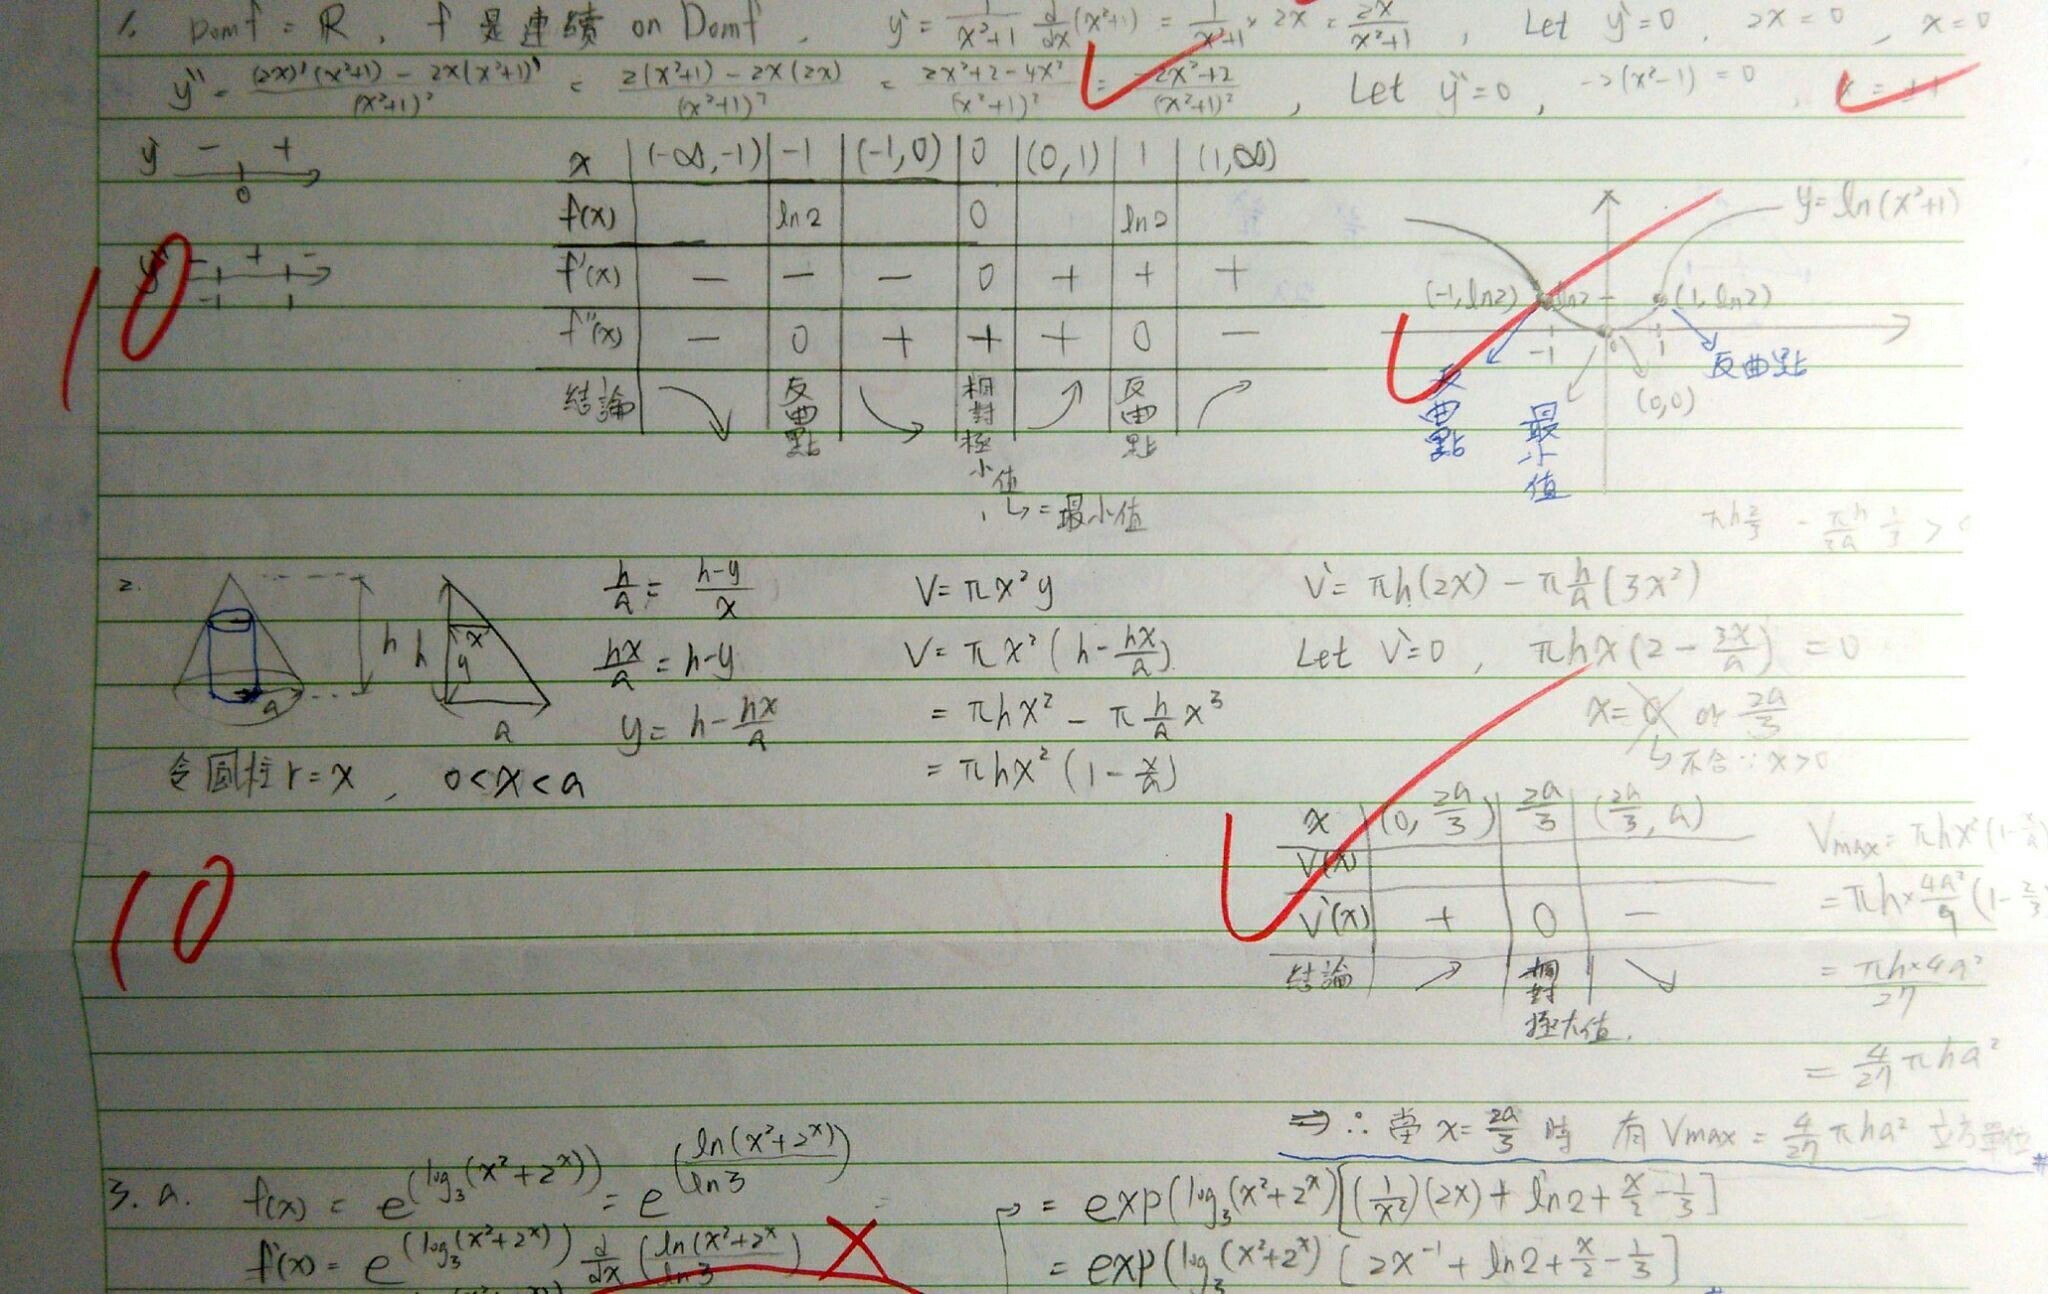 1. Domf = R, f 是連續 on Domf, y' = 1/(x²+1) d/dx (x²+1) = 1/(x²+1) × 2x = 2x/(x²+1), Let y'=0, 2x=0, x=0
y'' = ((2x)'(x²+1) - 2x(x²+1)')/(x²+1)² = (2(x²+1) - 2x(2x))/(x²+1)² = (2x²+2-4x²)/(x²+1)² = (-2x²+2)/(x²+1)², Let y''=0, -2(x²-1)=0, x=±1
y' - + 0
y'' - + - -1 1
10
x | (-∞,-1) | -1 | (-1,0) | 0 | (0,1) | 1 | (1,∞)
f(x) | ln2 | 0 | ln2
f'(x) | - | - | - | 0 | + | + | +
f''(x) | - | 0 | + | + | + | 0 | -
結論 | 反曲點 | 相對極小值 | 反曲點
↳ = 最小值
y=ln(x²+1)
(-1,ln2) ln2 (1,ln2)
-1 0 1
反曲點 最小值 (0,0) 反曲點
πh 2/3 - πh/2a 1/3 >
2. h h y x a a
h/a = (h-y)/x
hx/a = h-y
y = h - hx/a
令圓柱 r=x, 0<x<a
V=πx²y
V=πx²(h-hx/a)
= πhx² - π h/a x³
= πhx²(1-x/a)
V'=πh(2x) - π h/a (3x²)
Let V'=0, πhx(2-3x/a) = 0
x=0 or 2a/3
↳不合∵x>0
x | (0, 2a/3) | 2a/3 | (2a/3, a)
V(x)
V'(x) | + | 0 | -
結論 | ↗ | 相對極大值. | ↘
Vmax = πhx²(1-x/a)
= πh×4a²/9 (1-2/3)
= πh×4a²/27
= 4/27 πha²
10
⇒ ∴ 當 x=2a/3 時 有 Vmax = 4/27 πha² 立方單位 #
3. a. f(x) = e^(log₃(x²+2ˣ)) = e^(ln(x²+2ˣ)/ln3)
f'(x) = e^(log₃(x²+2ˣ)) d/dx (ln(x²+2ˣ)/ln3)
= exp(log₃(x²+2ˣ)[(1/x²)(2x) + ln2 + x/2 - 1/3]
= exp(log₃(x²+2ˣ) [2x⁻¹ + ln2 + x/2 - 1/3]